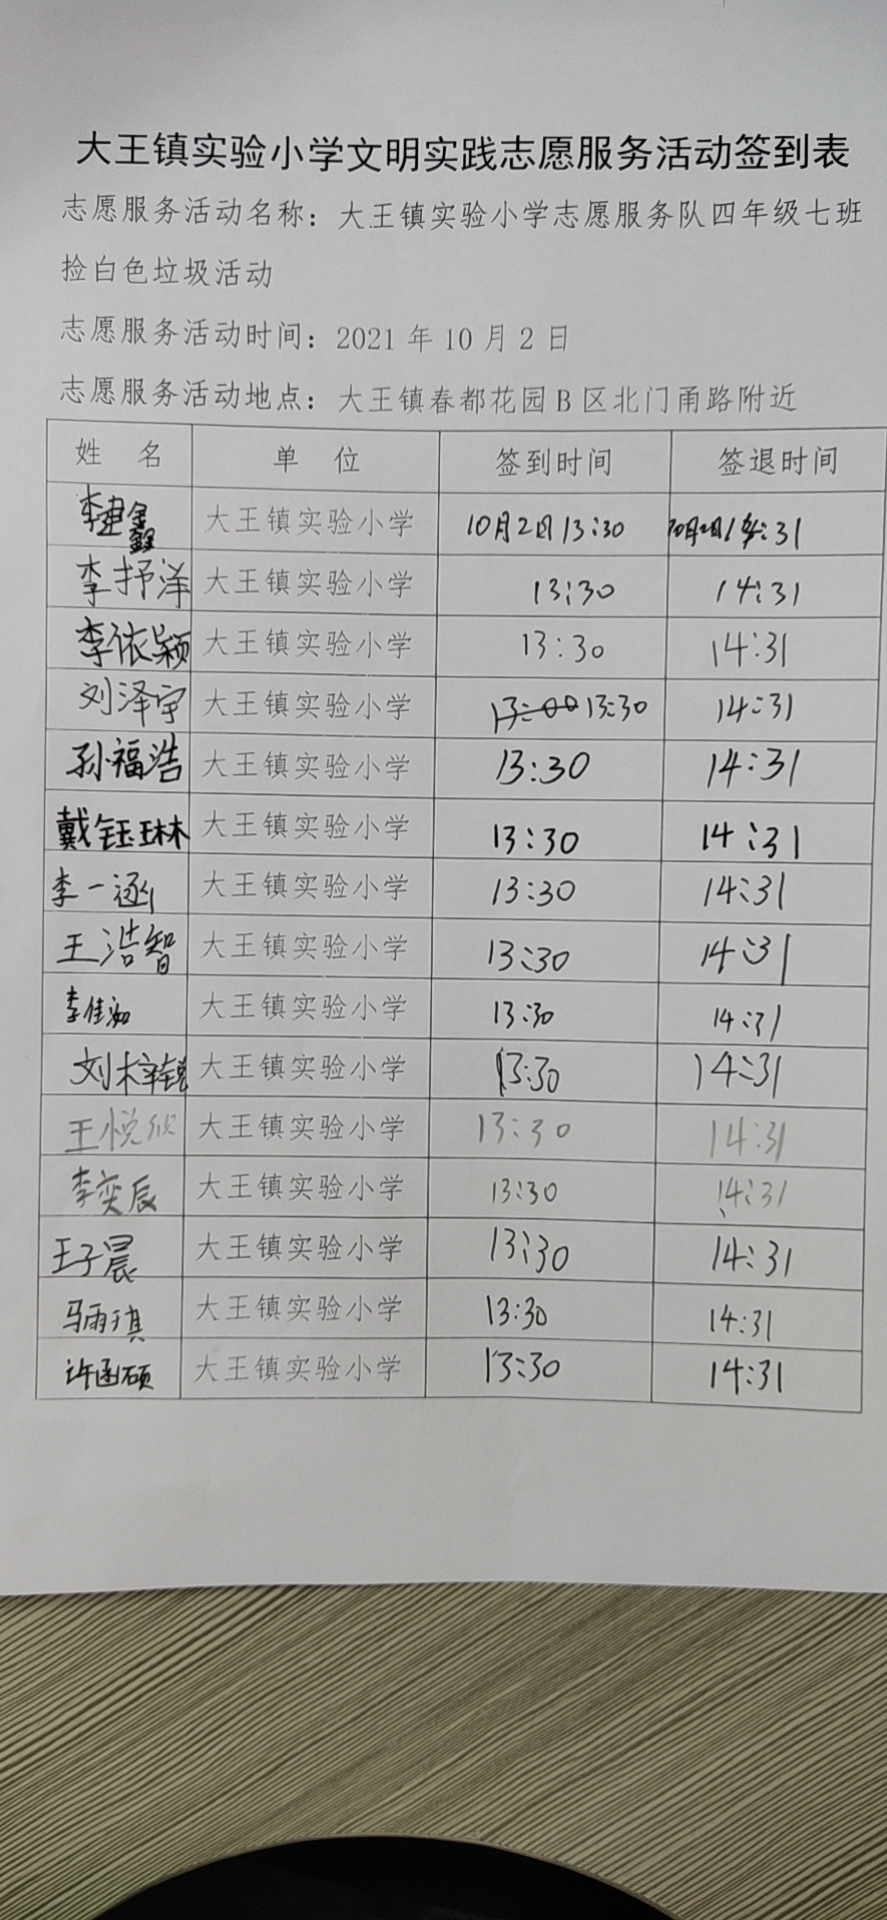 大王镇实验小学文明实践志愿服务活动签到表
志愿服务活动名称：大王镇实验小学志愿服务队四年级七班
捡白色垃圾活动
志愿服务活动时间：2021 年 10 月 2 日
志愿服务活动地点：大王镇春都花园 B 区北门甬路附近
姓 名 单 位 签到时间 签退时间
李建鑫 大王镇实验小学 10月2日13:30 10月2日14:31
李抒洋 大王镇实验小学 13:30 14:31
李依颖 大王镇实验小学 13:30 14:31
刘泽宇 大王镇实验小学 13:00 13:30 14:31
孙福浩 大王镇实验小学 13:30 14:31
戴钰琳 大王镇实验小学 13:30 14:31
李一涵 大王镇实验小学 13:30 14:31
王浩智 大王镇实验小学 13:30 14:31
李佳 大王镇实验小学 13:30 14:31
刘梓锐 大王镇实验小学 13:30 14:31
王悦欣 大王镇实验小学 13:30 14:31
李奕辰 大王镇实验小学 13:30 14:31
王子晨 大王镇实验小学 13:30 14:31
马雨琪 大王镇实验小学 13:30 14:31
许函硕 大王镇实验小学 13:30 14:31